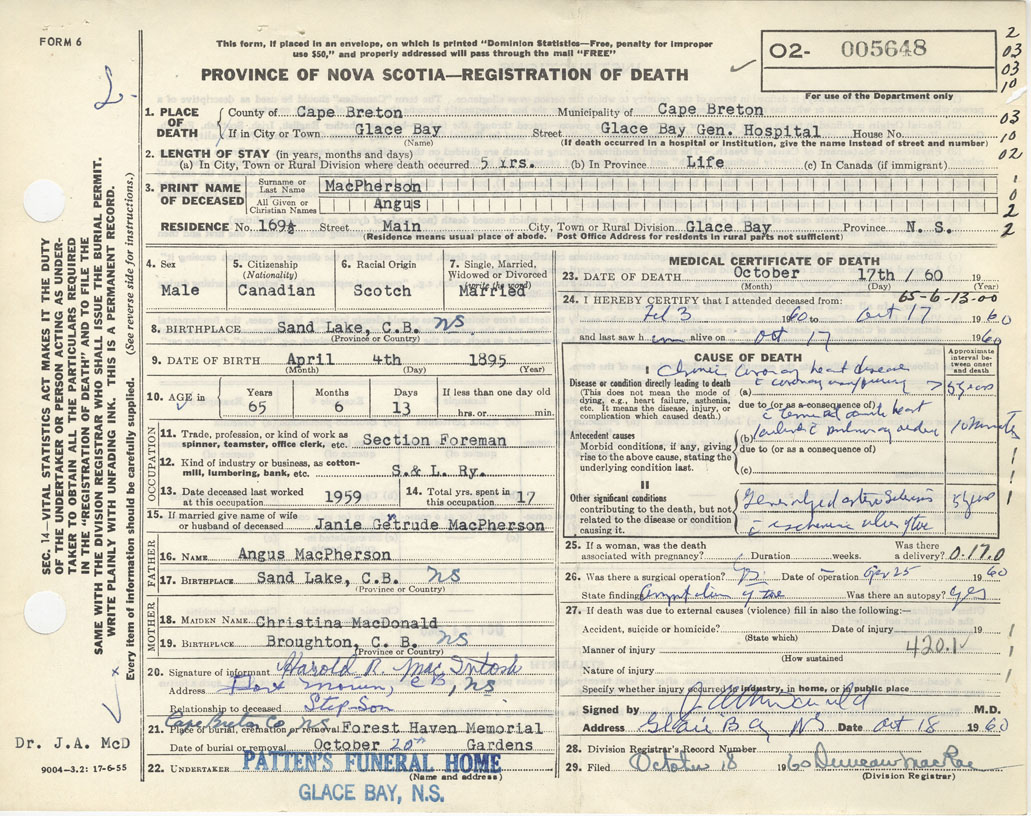 FORM 6
This form, if placed in an envelope, on which is printed "Dominion Statistics—Free, penalty for improper
use $50," and properly addressed will pass through the mail "FREE"
PROVINCE OF NOVA SCOTIA—REGISTRATION OF DEATH
O2- 005648
For use of the Department only
2
03
03
10
03
10
02
1
0
2
2
1. PLACE OF DEATH
County of Cape Breton Municipality of Cape Breton
If in City or Town Glace Bay Street Glace Bay Gen. Hospital House No.
(Name) (If death occurred in a hospital or Institution, give the name instead of street and number)
2. LENGTH OF STAY (in years, months and days)
(a) In City, Town or Rural Division where death occurred 5 yrs. (b) In Province Life (c) In Canada (if immigrant)
3. PRINT NAME OF DECEASED
Surname or Last Name MacPherson
All Given or Christian Names Angus
RESIDENCE No. 169½ Street Main City, Town or Rural Division Glace Bay Province N. S.
(Residence means usual place of abode. Post Office Address for residents in rural parts not sufficient)
4. Sex Male
5. Citizenship (Nationality) Canadian
6. Racial Origin Scotch
7. Single, Married, Widowed or Divorced (write the word) Married
8. BIRTHPLACE Sand Lake, C.B. NS
(Province or Country)
9. DATE OF BIRTH April 4th 1895
(Month) (Day) (Year)
10. AGE in Years 65 Months 6 Days 13 If less than one day old hrs. or min.
OCCUPATION
11. Trade, profession, or kind of work as spinner, teamster, office clerk, etc. Section Foreman
12. Kind of industry or business, as cotton-mill, lumbering, bank, etc. S.& L. Ry.
13. Date deceased last worked at this occupation 1959
14. Total yrs. spent in this occupation 17
15. If married give name of wife or husband of deceased Janie Getrude MacPherson
FATHER
16. NAME Angus MacPherson
17. BIRTHPLACE Sand Lake, C.B. NS
(Province or Country)
MOTHER
18. MAIDEN NAME Christina MacDonald
19. BIRTHPLACE Broughton, C. B. NS
(Province or Country)
20. Signature of informant Harold R. MacIntosh
Address Port Morien, CB, NS
Relationship to deceased Step-Son
Cape Breton Co NS
21. Place of burial, cremation or removal Forest Haven Memorial
Date of burial or removal October 20th Gardens
22. UNDERTAKER PATTEN'S FUNERAL HOME
(Name and address)
GLACE BAY, N.S.
MEDICAL CERTIFICATE OF DEATH
23. DATE OF DEATH October 17th / 60
(Month) (Day) (Year)
65-6-13-00
24. I HEREBY CERTIFY that I attended deceased from:
Feb 3 1960 to Oct 17 1960
and last saw him alive on Oct 17 1960
CAUSE OF DEATH
Approximate interval between onset and death
I
Disease or condition directly leading to death
(This does not mean the mode of dying, e.g., heart failure, asthenia, etc. It means the disease, injury, or complication which caused death.)
coronary heart disease
(a) 5 years
due to (or as a consequence of)
Antecedent causes
Morbid conditions, if any, giving rise to the above cause, stating the underlying condition last.
(b) 10 minutes
due to (or as a consequence of)
(c)
II
Other significant conditions
contributing to the death, but not related to the disease or condition causing it.
Generalized 5 years
25. If a woman, was the death associated with pregnancy? Duration weeks. Was there a delivery? 0-17.0
26. Was there a surgical operation? yes Date of operation 25 1960
State finding Was there an autopsy? yes
27. If death was due to external causes (violence) fill in also the following:—
Accident, suicide or homicide? Date of injury 19
(State which)
Manner of injury 420.1
(How sustained)
Nature of injury
Specify whether injury occurred in industry, in home, or in public place
Signed by M.D.
Address Glace Bay NS Date Oct 18 1960
28. Division Registrar's Record Number
29. Filed October 18 1960 Duncan MacRae
(Division Registrar)
SEC. 14—VITAL STATISTICS ACT MAKES IT THE DUTY
OF THE UNDERTAKER OR PERSON ACTING AS UNDER-
TAKER TO OBTAIN ALL THE PARTICULARS REQUIRED
IN THE "REGISTRATION OF DEATH" AND TO FILE THE
SAME WITH THE DIVISION REGISTRAR WHO SHALL ISSUE THE BURIAL PERMIT.
WRITE PLAINLY WITH UNFADING INK. THIS IS A PERMANENT RECORD.
Every item of information should be carefully supplied. (See reverse side for instructions.)
Dr. J.A. McD
9004-3.2: 17-6-55